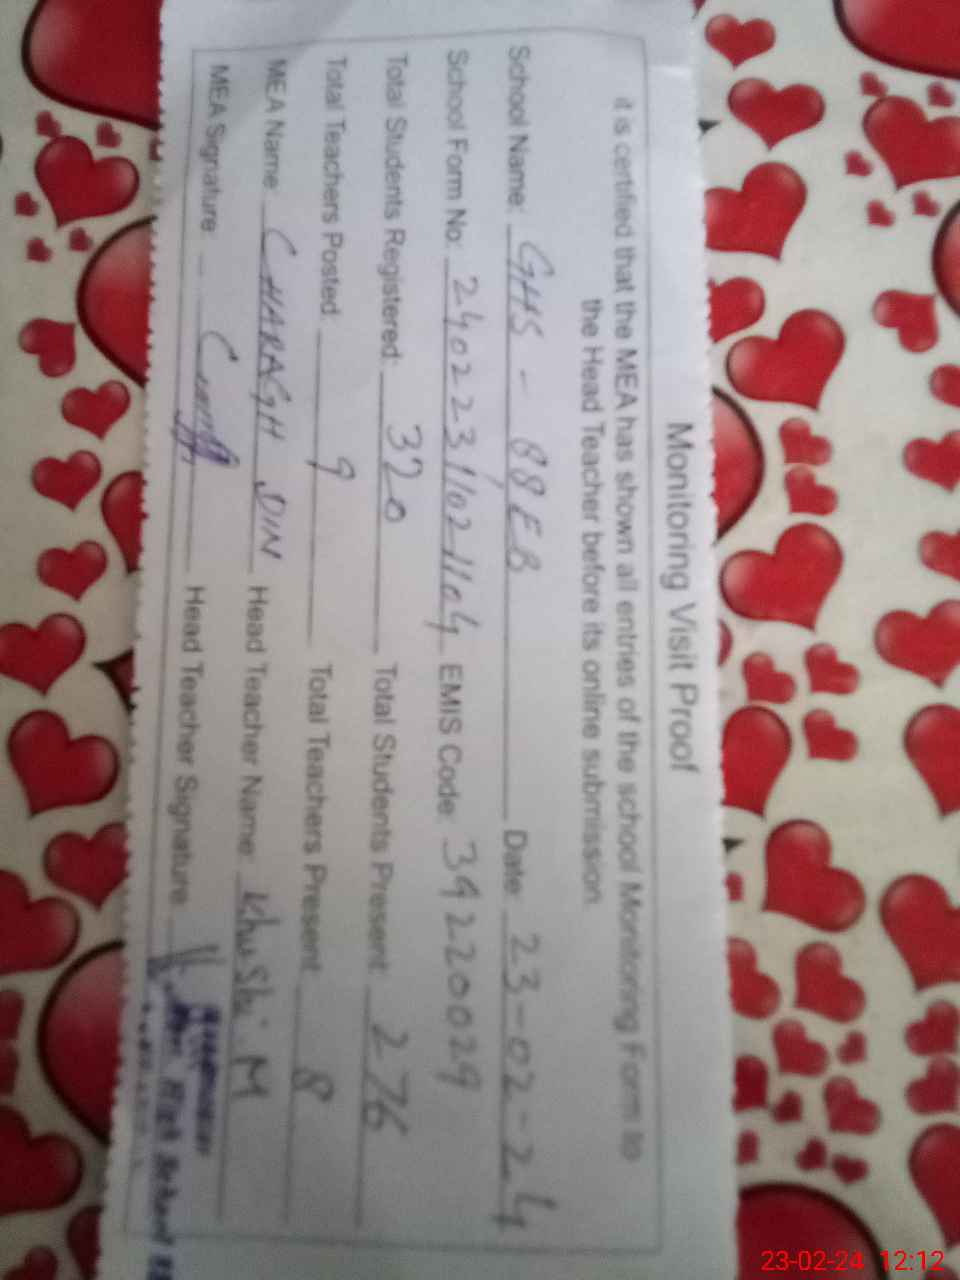 Monitoring Visit Proof
it is certified that the MEA has shown all entries of the school Monitoring Form to
the Head Teacher before its online submission.
School Name: GHS - 88EB Date: 23-02-24
School Form No: 24022311021104 EMIS Code: 39220029
Total Students Registered: 320 Total Students Present: 276
Total Teachers Posted: 9 Total Teachers Present: 8
MEA Name: CHARAGH DIN Head Teacher Name: Khushi M
MEA Signature: Head Teacher Signature
High School
23-02-24 12:12